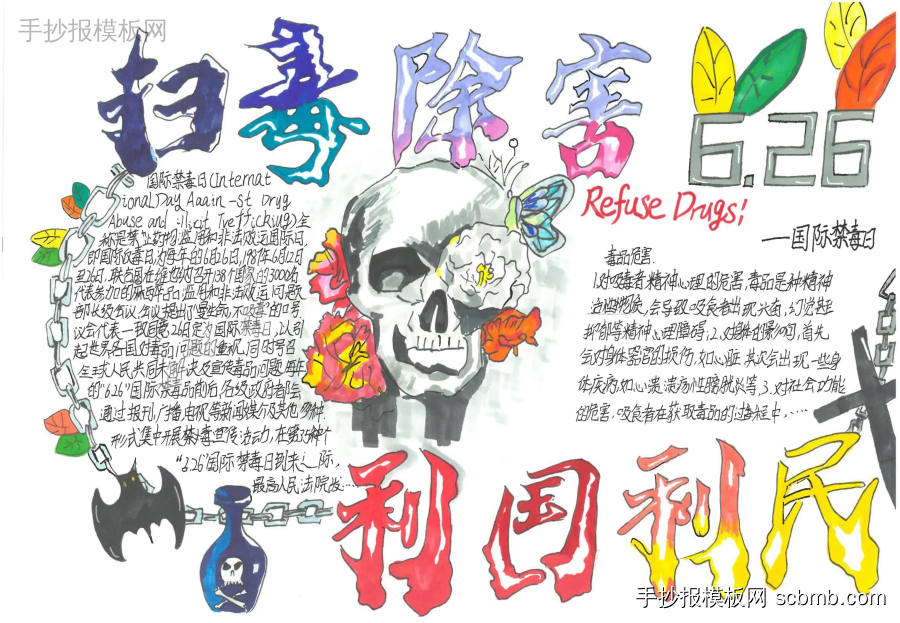 手抄报模板网
扫毒除害
6.26
Refuse Drugs!
——国际禁毒日
国际禁毒日(Internat
ional Day Again-st Drug
Abuse and illicit Trafficking)全
称是禁止药物滥用和非法贩运国际日,
即国际反毒日,为每年的6月26日,1987年6月12日
至26日,联合国在维也纳召开138个国家的3000名
代表参加的麻醉品滥用和非法贩运问题
部长级会议,会议提出了“爱生命,不吸毒”的口号
议会代表一致同意26日定为国际禁毒日,以引
起世界各国对毒品问题的重视,同时号召
全球人民共同来解决及宣传毒品问题,每年
的“6.26”国际禁毒日前后,各级政府都会
通过报刊广播电视等新闻媒介及其他多种
形式集中开展禁毒宣传活动,在第25个
“6.26”国际禁毒日到来之际,
最高人民法院发……
毒品危害:
1.对吸毒者精神心理的危害,毒品是种精神
会导致吸食者出现兴奋,幻觉甚至
抑郁等精神心理障碍;2.对身体的影响,首先
会对身体器官的损伤,如心脏,其次会出现一些身
体疾病,如心 溃疡病性膀胱炎等;3.对社会功能
的危害,吸食者在获取毒品的过程中,……
利国利民
手抄报模板网 scbmb.com